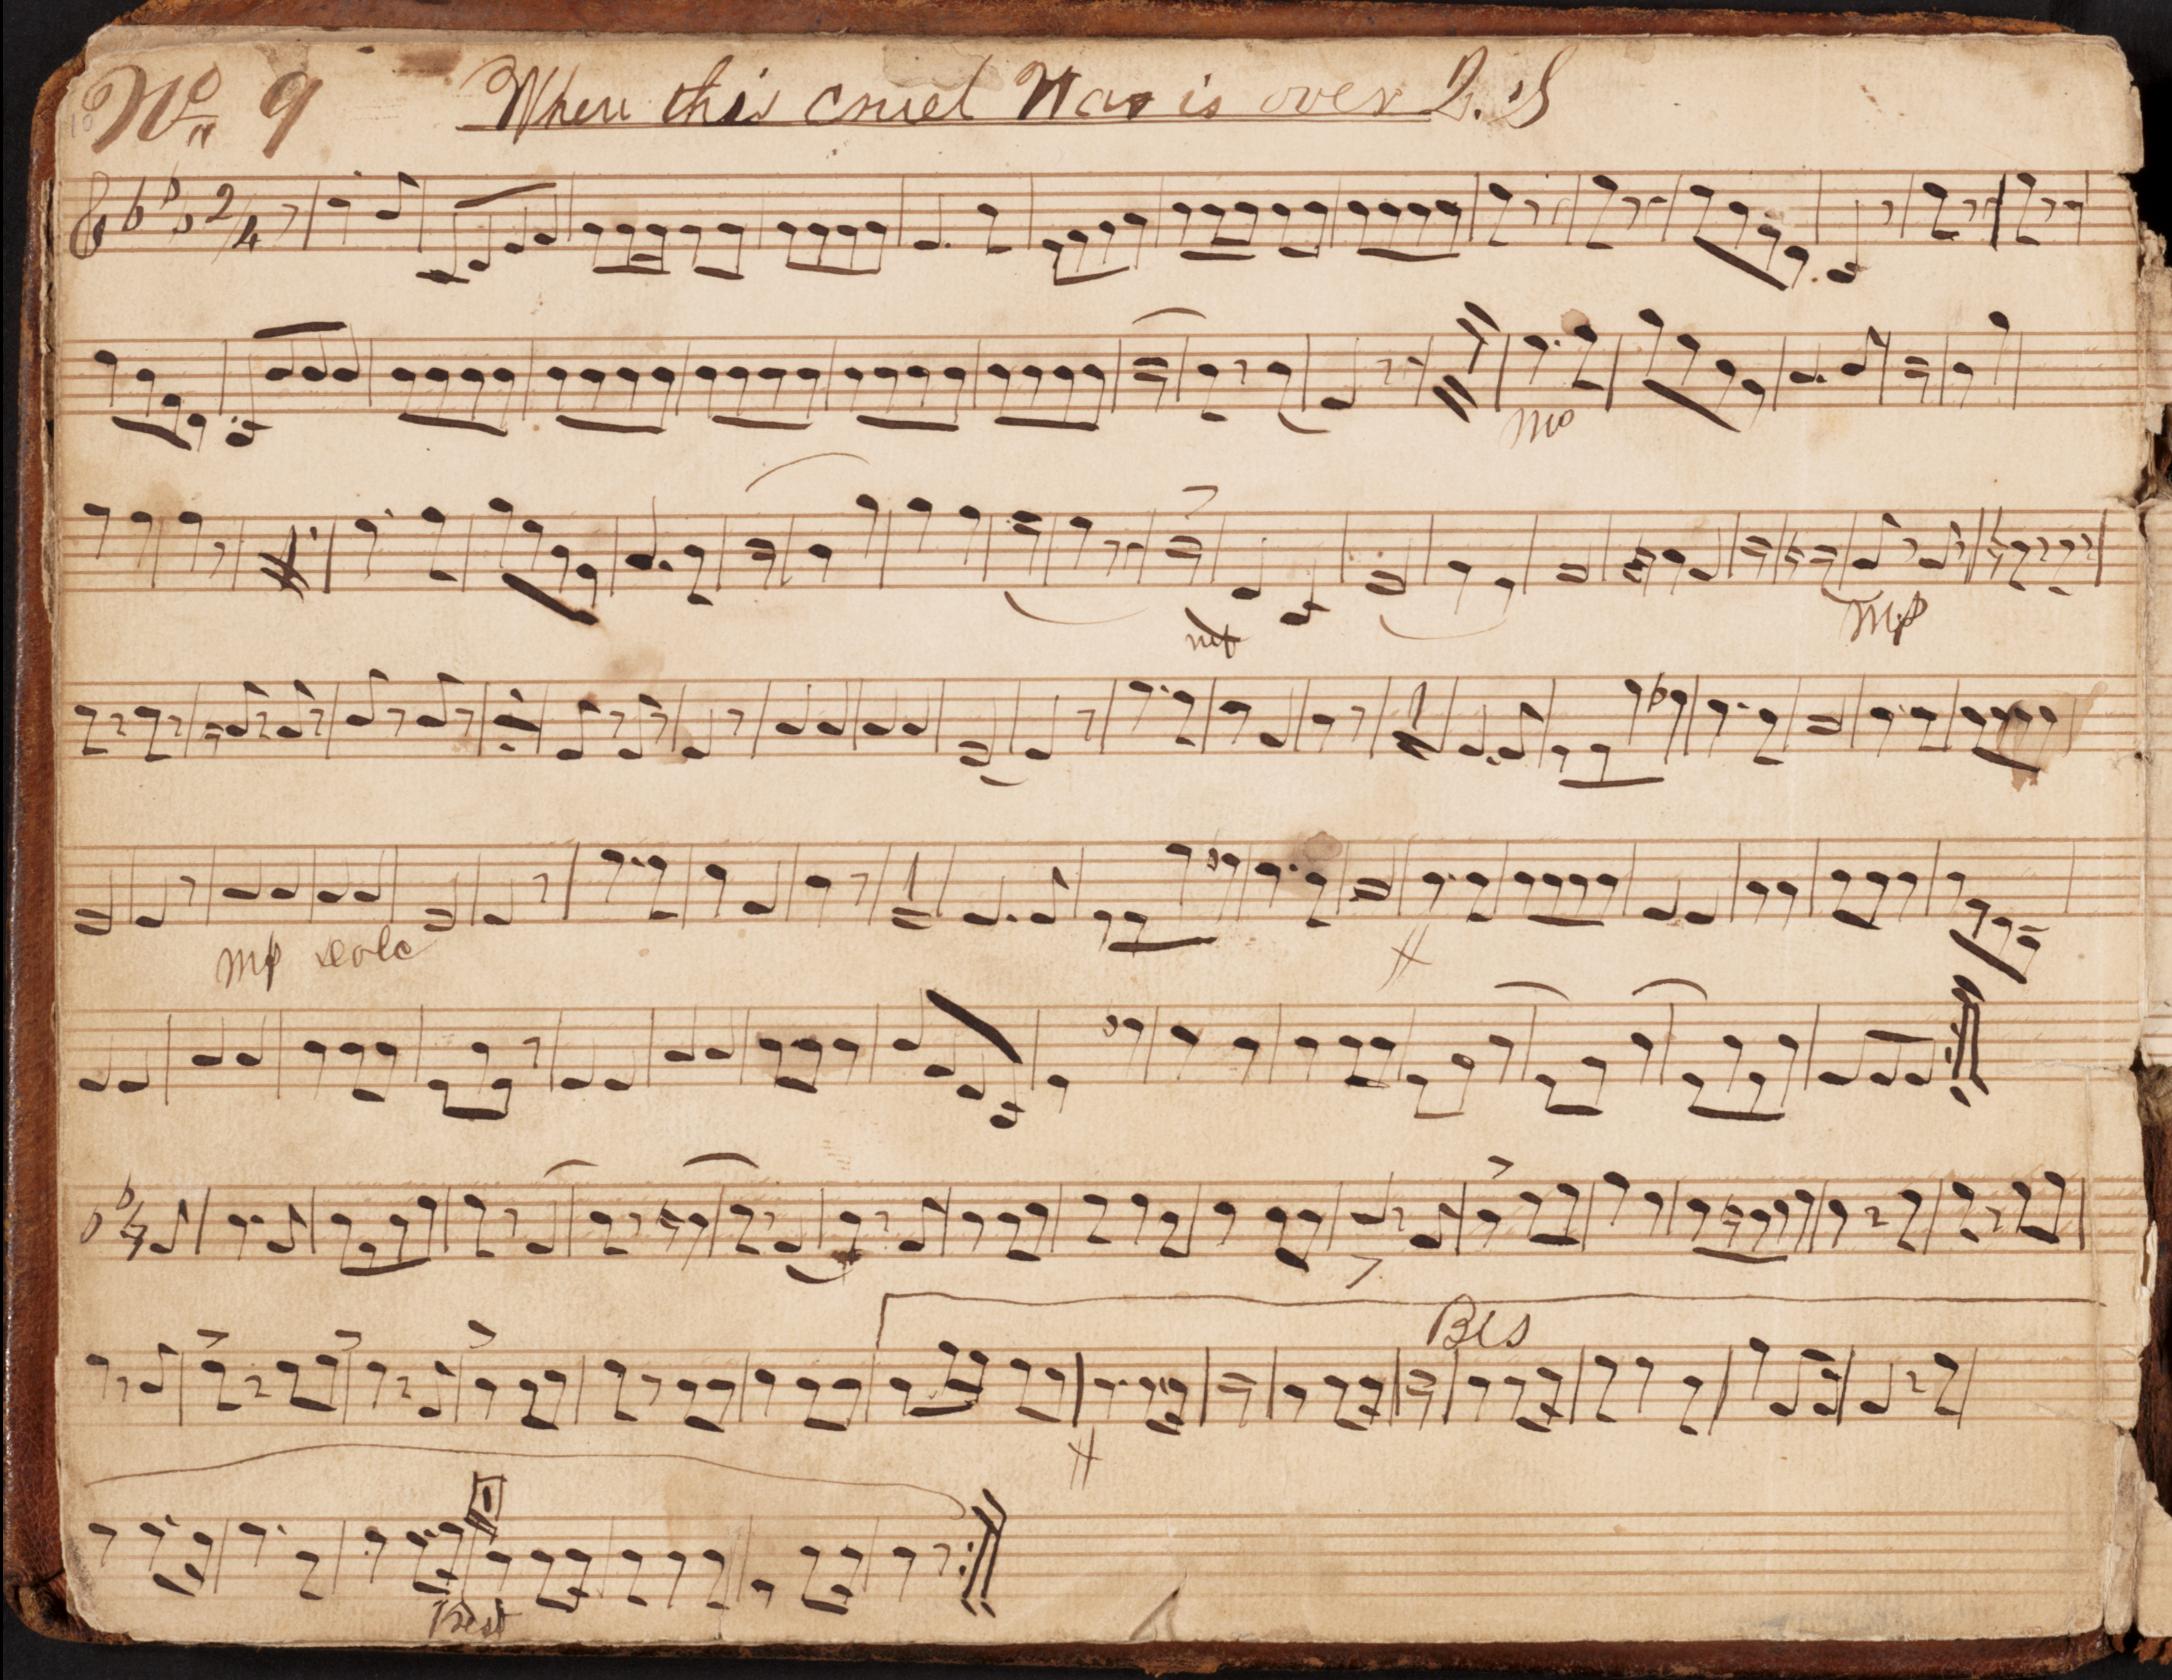 No 9 When this cruel War is over Q. S
2/4
mo
mf
mp
mp solo
Bis